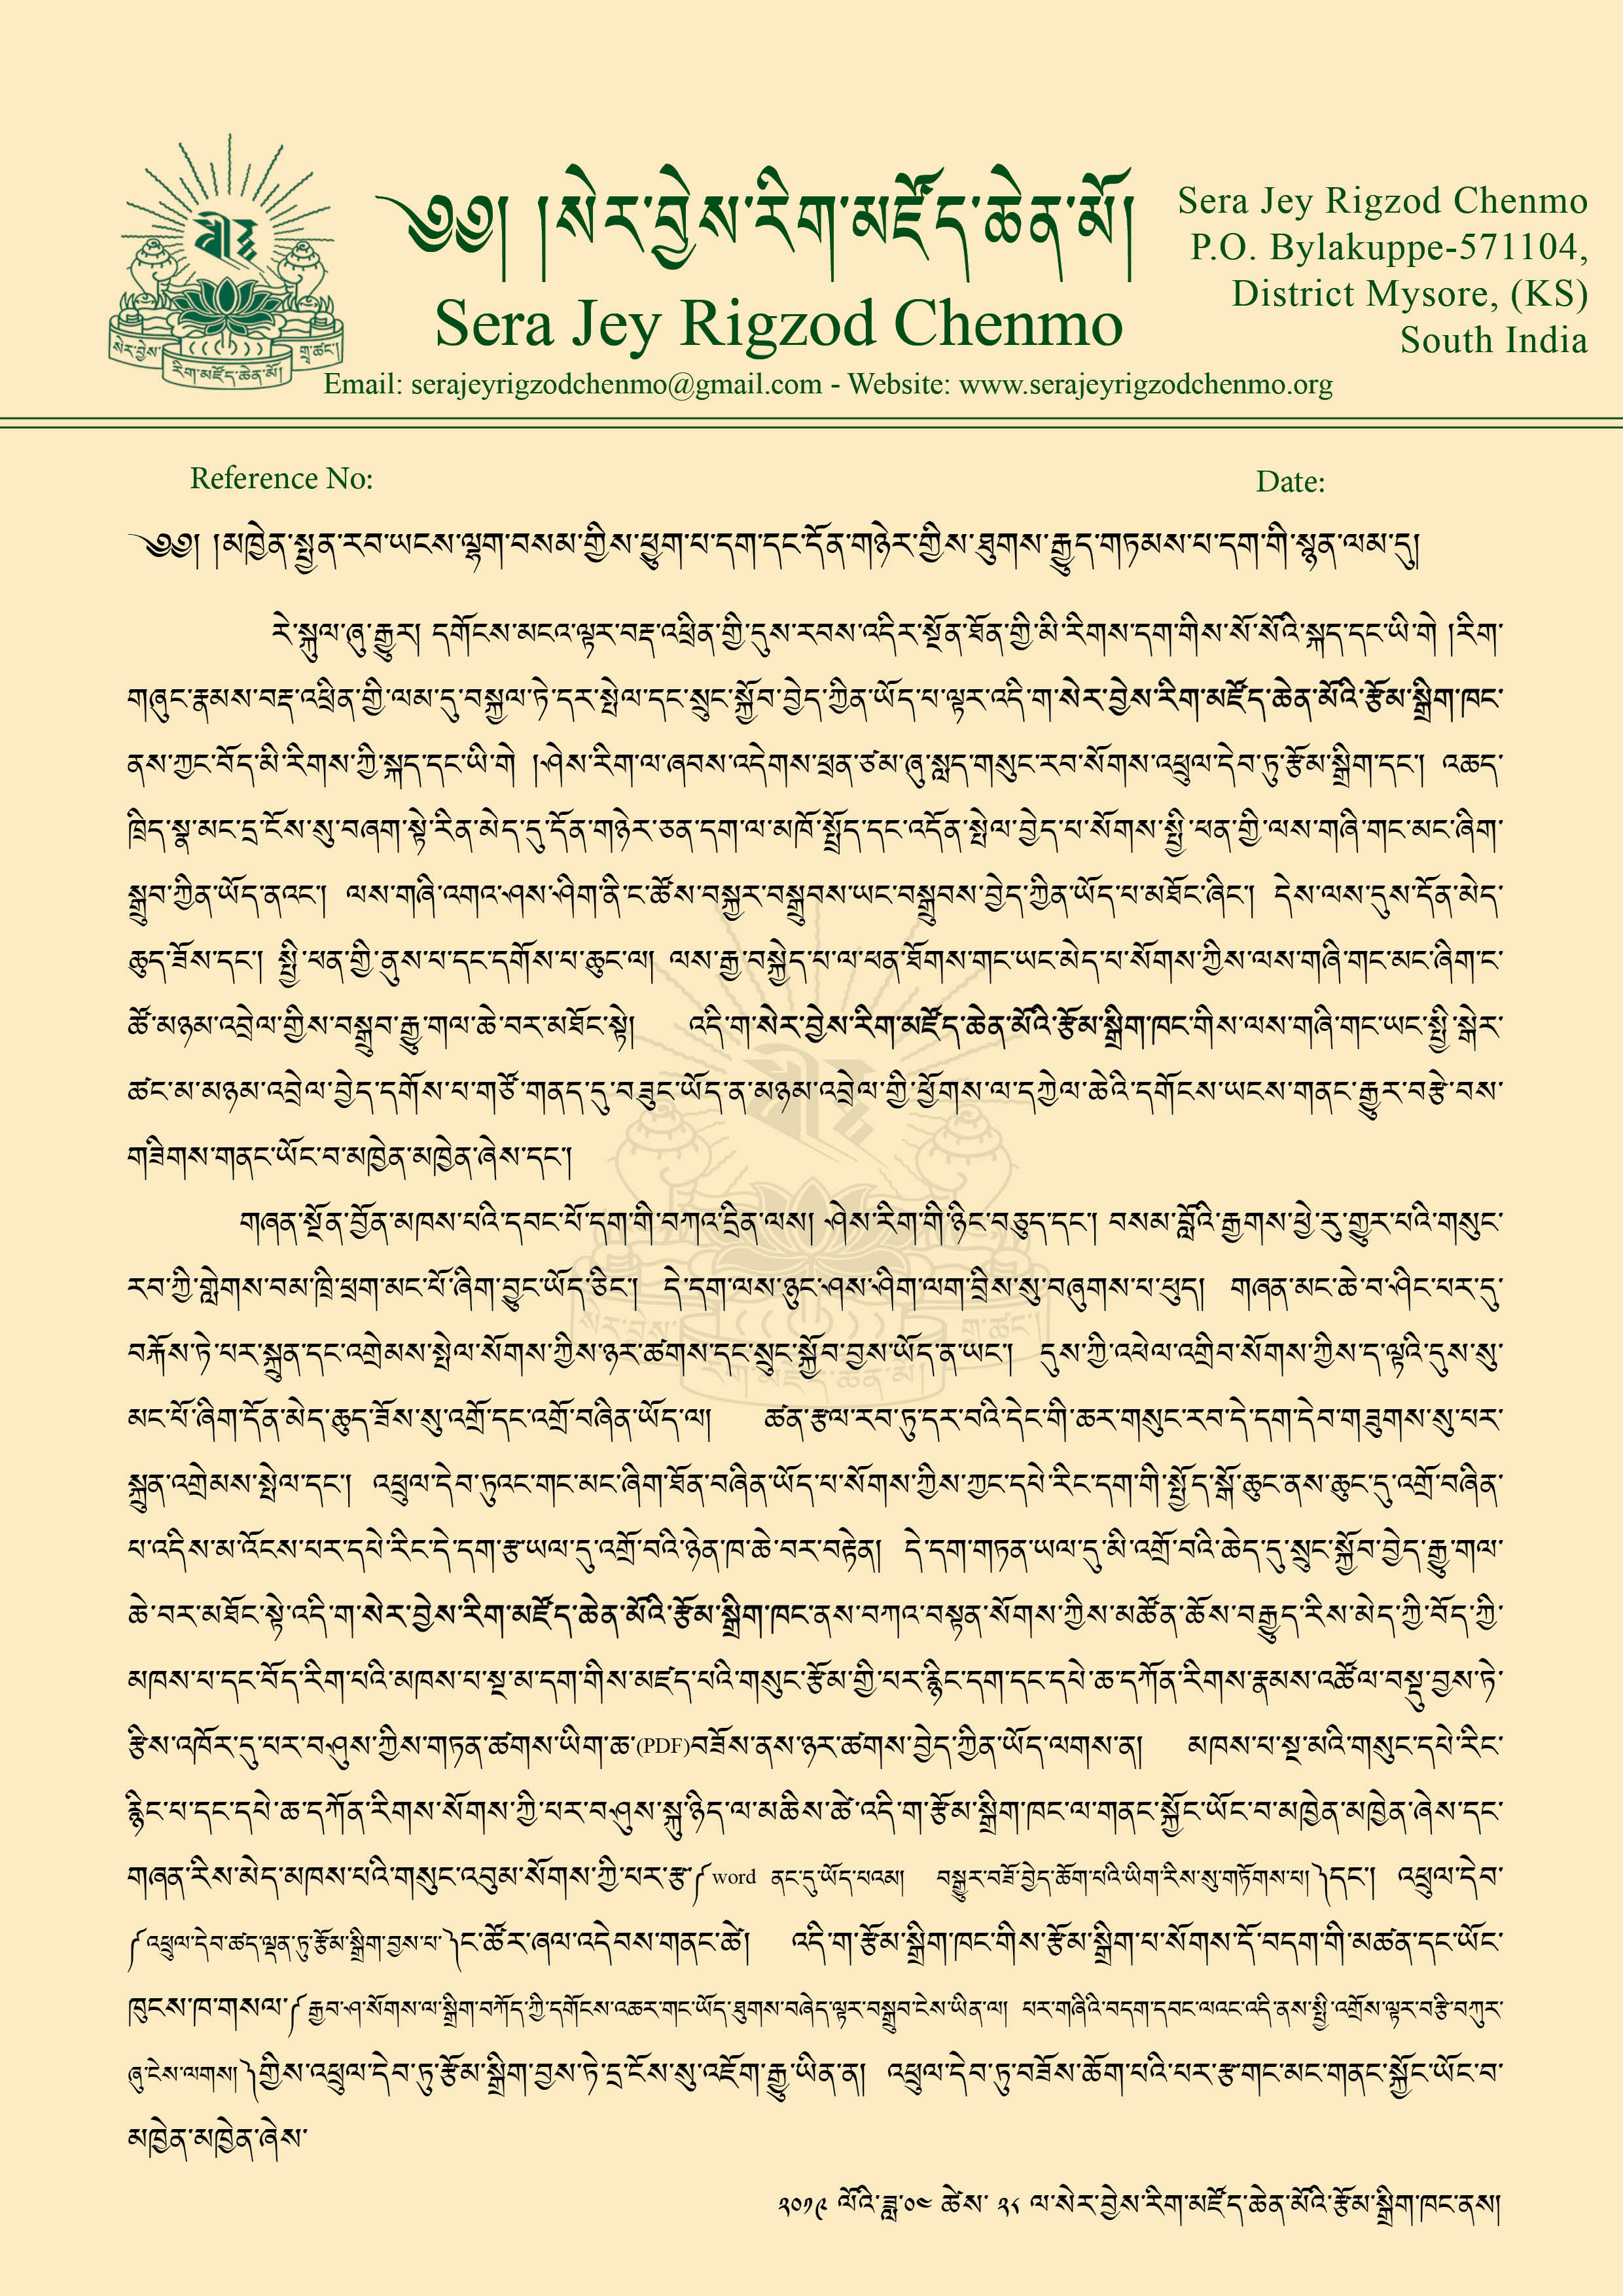 ༄༅། །སེར་བྱེས་རིག་མཛོད་ཆེན་མོ།
Sera Jey Rigzod Chenmo
Email: serajeyrigzodchenmo@gmail.com - Website: www.serajeyrigzodchenmo.org
Sera Jey Rigzod Chenmo
P.O. Bylakuppe-571104,
District Mysore, (KS)
South India
སེར་བྱེས་ གྲྭ་ཚང་།
རིག་མཛོད་ཆེན་མོ།
Reference No: Date:
༄༅། །མཁྱེན་སྤྱན་རབ་ཡངས་ལྷག་བསམ་གྱིས་ཕྱུག་པ་དག་དང་དོན་གཉེར་གྱིས་ཐུགས་རྒྱུད་གཏམས་པ་དག་གི་སྙན་ལམ་དུ།
རེ་སྐུལ་ཞུ་རྒྱུར། དགོངས་མངའ་ལྟར་བརྡ་འཕྲིན་གྱི་དུས་རབས་འདིར་སྔོན་ཐོན་གྱི་མི་རིགས་དག་གིས་སོ་སོའི་སྐད་དང་ཡི་གེ །རིག་
གཞུང་རྣམས་བརྡ་འཕྲིན་གྱི་ལམ་དུ་བསྐྱལ་ཏེ་དར་སྤེལ་དང་སྲུང་སྐྱོབ་བྱེད་ཀྱིན་ཡོད་པ་ལྟར་འདི་ག་སེར་བྱེས་རིག་མཛོད་ཆེན་མོའི་རྩོམ་སྒྲིག་ཁང་
ནས་ཀྱང་བོད་མི་རིགས་ཀྱི་སྐད་དང་ཡི་གེ །ཤེས་རིག་ལ་ཞབས་འདེགས་ཕྲན་ཙམ་ཞུ་སླད་གསུང་རབ་སོགས་འཕྲུལ་དེབ་ཏུ་རྩོམ་སྒྲིག་དང་། འཆད་
ཁྲིད་སྣ་མང་དྲ་ངོས་སུ་བཞག་སྟེ་རིན་མེད་དུ་དོན་གཉེར་ཅན་དག་ལ་མཁོ་སྤྲོད་དང་འདོན་སྤེལ་བྱེད་པ་སོགས་སྤྱི་ཕན་གྱི་ལས་གཞི་གང་མང་ཞིག་
སྒྲུབ་ཀྱིན་ཡོད་ནའང་། ལས་གཞི་འགའ་ཤས་ཤིག་ནི་ང་ཚོས་བསྐྱར་བསྒྲུབས་ཡང་བསྒྲུབས་བྱེད་ཀྱིན་ཡོད་པ་མཐོང་ཞིང་། དེས་ལས་དུས་དོན་མེད་
ཆུད་ཟོས་དང་། སྤྱི་ཕན་གྱི་ནུས་པ་དང་དགོས་པ་ཆུང་ལ། ལས་རྒྱ་བསྐྱེད་པ་ལ་ཕན་ཐོགས་གང་ཡང་མེད་པ་སོགས་ཀྱིས་ལས་གཞི་གང་མང་ཞིག་ང་
ཚོ་མཉམ་འབྲེལ་གྱིས་བསྒྲུབ་རྒྱུ་གལ་ཆེ་བར་མཐོང་སྟེ། འདི་ག་སེར་བྱེས་རིག་མཛོད་ཆེན་མོའི་རྩོམ་སྒྲིག་ཁང་གིས་ལས་གཞི་གང་ཡང་སྤྱི་སྒེར་
ཚང་མ་མཉམ་འབྲེལ་བྱེད་དགོས་པ་གཙོ་གནད་དུ་བཟུང་ཡོད་ན་མཉམ་འབྲེལ་གྱི་ཕྱོགས་ལ་དཀྱེལ་ཆེའི་དགོངས་ཡངས་གནང་རྒྱུར་བརྩེ་བས་
གཟིགས་གནང་ཡོང་བ་མཁྱེན་མཁྱེན་ཞེས་དང་།
གཞན་སྔོན་བྱོན་མཁས་པའི་དབང་པོ་དག་གི་བཀའ་དྲིན་ལས། ཤེས་རིག་གི་ཉིང་བཅུད་དང་། བསམ་བློའི་རྒྱགས་ཕྱེ་རུ་གྱུར་པའི་གསུང་
རབ་ཀྱི་གླེགས་བམ་ཁྲི་ཕྲག་མང་པོ་ཞིག་བྱུང་ཡོད་ཅིང་། དེ་དག་ལས་ཉུང་ཤས་ཤིག་ལག་བྲིས་སུ་བཞུགས་པ་ཕུད། གཞན་མང་ཆེ་བ་ཤིང་པར་དུ་
བརྐོས་ཏེ་པར་སྐྲུན་དང་འགྲེམས་སྤེལ་སོགས་ཀྱིས་ཉར་ཚགས་དང་སྲུང་སྐྱོབ་བྱས་ཡོད་ན་ཡང་། དུས་ཀྱི་འཕེལ་འགྲིབ་སོགས་ཀྱིས་ད་ལྟའི་དུས་སུ་
མང་པོ་ཞིག་དོན་མེད་ཆུད་ཟོས་སུ་འགྲོ་དང་འགྲོ་བཞིན་ཡོད་ལ། ཚན་རྩལ་རབ་ཏུ་དར་བའི་དེང་གི་ཆར་གསུང་རབ་དེ་དག་དེབ་གཟུགས་སུ་པར་
སྐྲུན་འགྲེམས་སྤེལ་དང་། འཕྲུལ་དེབ་ཏུའང་གང་མང་ཞིག་ཐོན་བཞིན་ཡོད་པ་སོགས་ཀྱིས་ཀྱང་དཔེ་རིང་དག་གི་སྤྱོད་སྒོ་ཆུང་ནས་ཆུང་དུ་འགྲོ་བཞིན་
པ་འདིས་མ་འོངས་པར་དཔེ་རིང་དེ་དག་རྩ་ཡལ་དུ་འགྲོ་བའི་ཉེན་ཁ་ཆེ་བར་བརྟེན། དེ་དག་གཏན་ཡལ་དུ་མི་འགྲོ་བའི་ཆེད་དུ་སྲུང་སྐྱོབ་བྱེད་རྒྱུ་གལ་
ཆེ་བར་མཐོང་སྟེ་འདི་ག་སེར་བྱེས་རིག་མཛོད་ཆེན་མོའི་རྩོམ་སྒྲིག་ཁང་ནས་བཀའ་བསྟན་སོགས་ཀྱིས་མཚོན་ཆོས་བརྒྱུད་རིས་མེད་ཀྱི་བོད་ཀྱི་
མཁས་པ་དང་བོད་རིག་པའི་མཁས་པ་སྔ་མ་དག་གིས་མཛད་པའི་གསུང་རྩོམ་གྱི་པར་རྙིང་དག་དང་དཔེ་ཆ་དཀོན་རིགས་རྣམས་འཚོལ་བསྡུ་བྱས་ཏེ་
རྩིས་འཁོར་དུ་པར་བཤུས་ཀྱིས་གཏན་ཚགས་ཡིག་ཆ་(PDF)བཟོས་ནས་ཉར་ཚགས་བྱེད་ཀྱིན་ཡོད་ལགས་ན། མཁས་པ་སྔ་མའི་གསུང་དཔེ་རིང་
རྙིང་པ་དང་དཔེ་ཆ་དཀོན་རིགས་སོགས་ཀྱི་པར་བཤུས་སྐུ་ཉིད་ལ་མཆིས་ཚེ་འདི་ག་རྩོམ་སྒྲིག་ཁང་ལ་གནང་སྐྱོང་ཡོང་བ་མཁྱེན་མཁྱེན་ཞེས་དང་
གཞན་རིས་མེད་མཁས་པའི་གསུང་འབུམ་སོགས་ཀྱི་པར་རྩ་༼word ནང་དུ་ཡོད་པའམ། བསྒྱུར་བཟོ་བྱེད་ཆོག་པའི་ཡིག་རིས་སུ་གཏོགས་པ།༽དང་། འཕྲུལ་དེབ་
༼འཕྲུལ་དེབ་ཚད་ལྡན་ཏུ་རྩོམ་སྒྲིག་བྱས་པ་༽ང་ཚོར་ཞལ་འདེབས་གནང་ཚེ། འདི་ག་རྩོམ་སྒྲིག་ཁང་གིས་རྩོམ་སྒྲིག་པ་སོགས་དོ་བདག་གི་མཚན་དང་ཡོང་
ཁུངས་ཁ་གསལ་༼རྒྱབ་ཤ་སོགས་ལ་སྒྲིག་བཀོད་ཀྱི་དགོངས་འཆར་གང་ཡོད་ཐུགས་བཞེད་ལྟར་བསྒྲུབ་ངེས་ཡིན་ལ། པར་གཞིའི་བདག་དབང་ལའང་འདི་ནས་སྤྱི་འགྲོས་ལྟར་བརྩི་བཀུར་
ཞུ་ངེས་ལགས།༽གྱིས་འཕྲུལ་དེབ་ཏུ་རྩོམ་སྒྲིག་བྱས་ཏེ་དྲ་ངོས་སུ་འཇོག་རྒྱུ་ཡིན་ན། འཕྲུལ་དེབ་ཏུ་བཟོས་ཆོག་པའི་པར་རྩ་གང་མང་གནང་སྐྱོང་ཡོང་བ་
མཁྱེན་མཁྱེན་ཞེས་
༢༠༡༩ ལོའི་ཟླ་༠༤ ཚེས་ ༢༨ ལ་སེར་བྱེས་རིག་མཛོད་ཆེན་མོའི་རྩོམ་སྒྲིག་ཁང་ནས།